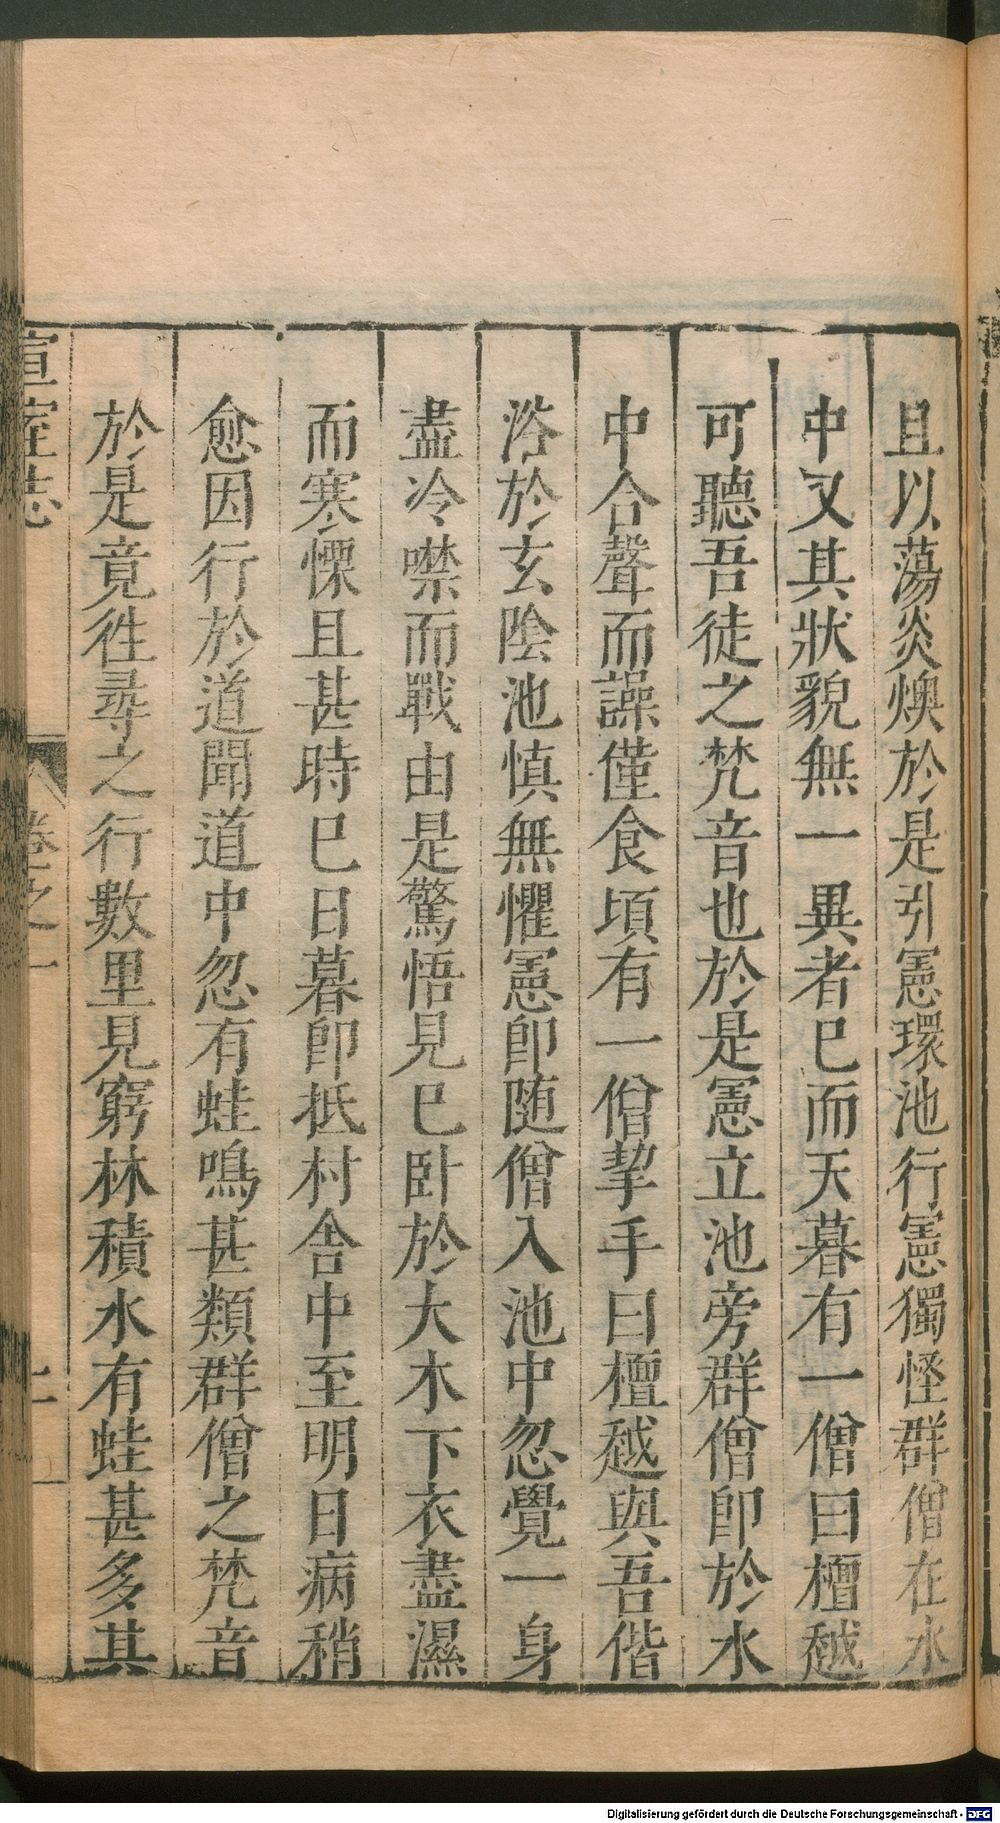 且以蕩炎燠於是引憲環池行憲獨怪群僧在水
中又其狀貌無一異者巳而天暮有一僧曰檀越
可聽吾徒之梵音也於是憲立池旁群僧即於水
中合聲而譟僅食頃有一僧挈手曰檀越與吾偕
浴於玄陰池慎無懼憲即随僧入池中忽覺一身
盡冷噤而戰由是驚悟見巳卧於大木下衣盡濕
而寒慄且甚時巳日暮即抵村舎中至明日病稍
愈因行於道聞道中忽有蛙鳴甚類群僧之梵音
於是竟徃尋之行數里見窮林積水有蛙甚多其
宣室志 卷之一
Digitalisierung gefördert durch die Deutsche Forschungsgemeinschaft - DFG